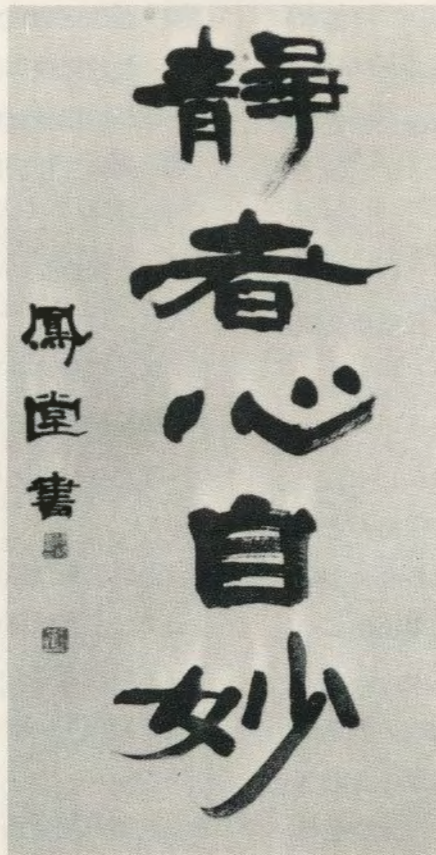 靜者心自妙
鳳堂書